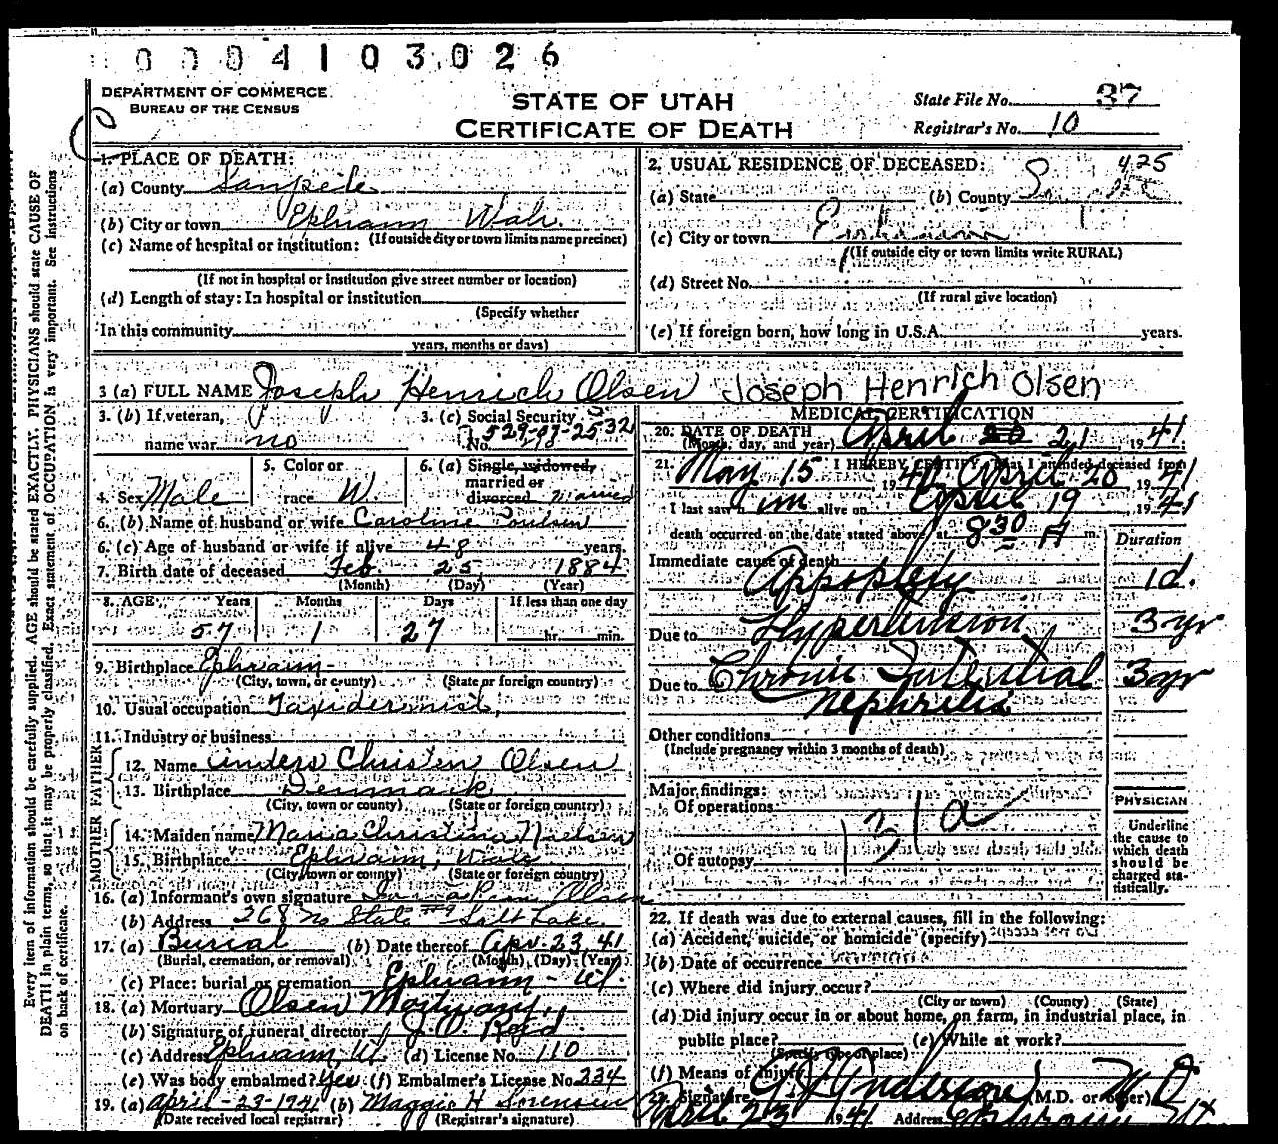 0004103026
DEPARTMENT OF COMMERCE
BUREAU OF THE CENSUS
STATE OF UTAH
CERTIFICATE OF DEATH
State File No. 37
Registrar's No. 10
Every item of information should be carefully supplied. AGE should be stated EXACTLY. PHYSICIANS should state CAUSE OF
DEATH in plain terms, so that it may be properly classified. Exact statement of OCCUPATION is very important. See instructions
on back of certificate.
1. PLACE OF DEATH:
(a) County Sanpete
(b) City or town Ephraim Utah.
(If outside city or town limits name precinct)
(c) Name of hospital or institution:
(If not in hospital or institution give street number or location)
(d) Length of stay: In hospital or institution
(Specify whether
In this community
years, months or days)
2. USUAL RESIDENCE OF DECEASED: 425
(a) State (b) County
(c) City or town Ephraim
(If outside city or town limits write RURAL)
(d) Street No.
(If rural give location)
(e) If foreign born, how long in U.S.A. years.
3 (a) FULL NAME Joseph Henrich Olsen Joseph Henrich Olsen
3. (b) If veteran,
name war no
3. (c) Social Security
No.
4. Sex Male
5. Color or
race W.
6. (a) Single, widowed,
married or
divorced married
6. (b) Name of husband or wife Caroline Poulsen
6. (c) Age of husband or wife if alive 48 years
7. Birth date of deceased Feb. 25 1884
(Month) (Day) (Year)
8. AGE Years Months Days If less than one day
57 1 27 hr. min.
9. Birthplace Ephraim
(City, town, or county) (State or foreign country)
10. Usual occupation Taxidermist,
11. Industry or business
FATHER
12. Name Anders Christen Olsen
13. Birthplace Denmark
(City, town or county) (State or foreign country)
MOTHER
14. Maiden name Maria Christina Nielsen
15. Birthplace Ephraim, Utah
(City, town or county) (State or foreign country)
16. (a) Informant's own signature Olsen
(b) Address 268 No State #9 Salt Lake
17. (a) Burial (b) Date thereof Apr. 23, 41
(Burial, cremation, or removal) (Month) (Day) (Year)
(c) Place: burial or cremation Ephraim - Ut.
18. (a) Mortuary Olsen Mortuary,
(b) Signature of funeral director
(c) Address Ephraim, Ut. (d) License No. 110
(e) Was body embalmed? Yes (f) Embalmer's License No. 334
19. (a) April-23-1941 (b) Maggie H Sorensen
(Date received local registrar) (Registrar's signature)
MEDICAL CERTIFICATION
20. DATE OF DEATH
(Month, day, and year) April 20 21 1941.
21. I HEREBY CERTIFY, that I attended deceased from
May 15 19 40, April 20 1941
I last saw him alive on April 19 1941
death occurred on the date stated above, at 8 30 A m.
Duration
Immediate cause of death
Appoplexy 1d.
Due to Hypertension 3 yr
Due to Chronic Intestitial 3 yr
Nephritis
Other conditions
(Include pregnancy within 3 months of death)
Major findings:
Of operations
131a
Of autopsy
PHYSICIAN
Underline
the cause to
which death
should be
charged sta-
tistically.
22. If death was due to external causes, fill in the following:
(a) Accident, suicide, or homicide (specify)
(b) Date of occurrence
(c) Where did injury occur?
(City or town) (County) (State)
(d) Did injury occur in or about home, on farm, in industrial place, in
public place? (e) While at work?
(Specify type of place)
(f) Means of injury
23. Signature Anderson M.D. (M.D. or other)
April 23 1941 Address Ephraim Ut.